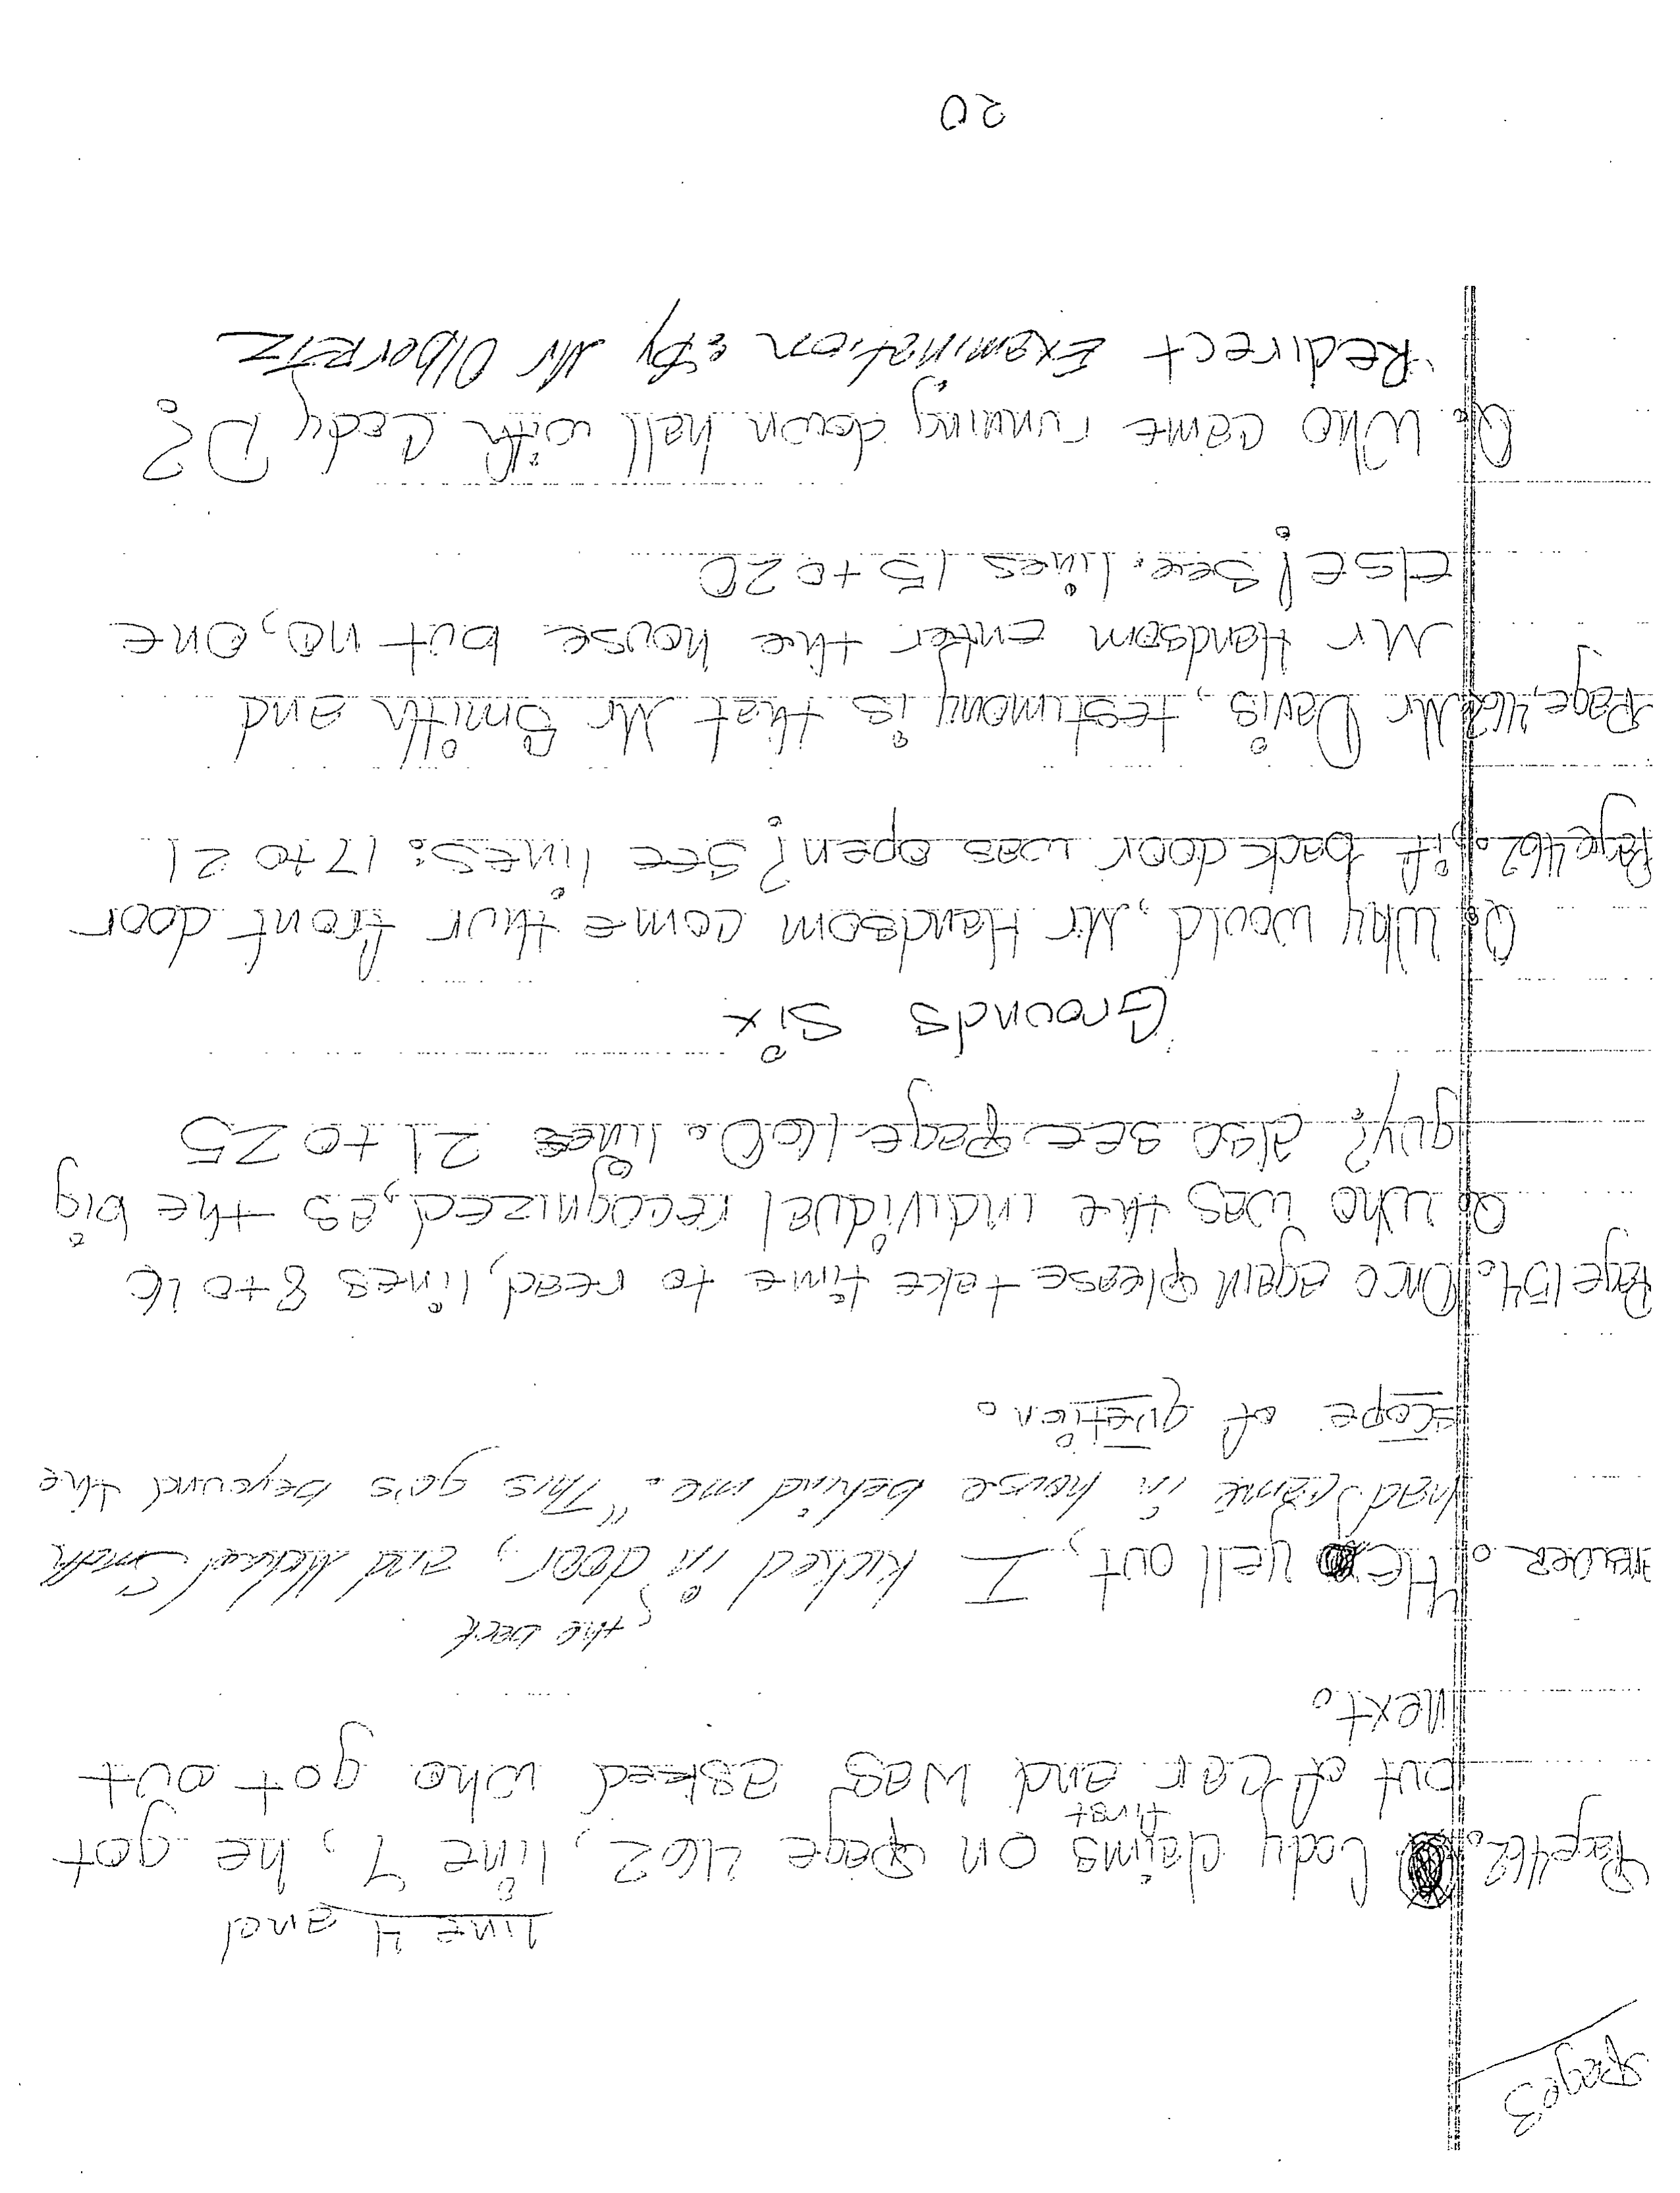 Page 3
line 4 and
Page 462. Cody claims on page 462, line 7, he got
first
out of car and was asked who got out
Next.
the back
He yell out, I kicked in door, and Micheal Smith
had came in house behind me." This go's beyound the
scope of quetion.
Page 154. Once again please take time to read, lines 8 to 16
Q. who was the individuel recognized, as the big
guy? also see page 160. lines 21 to 25
Grounds Six
Q. Why would, Mr Handsom come thur front door
Page 462. if back door was open? see lines: 17 to 21
Page, 462 Mr Davis, testimony is that Mr Smith and
Mr Handsom enter the house but no, one
else! See. lines 15 to 20
Q. Who came running down hall with Cody D?
Redirect Examination: By Mr Olberetz
20